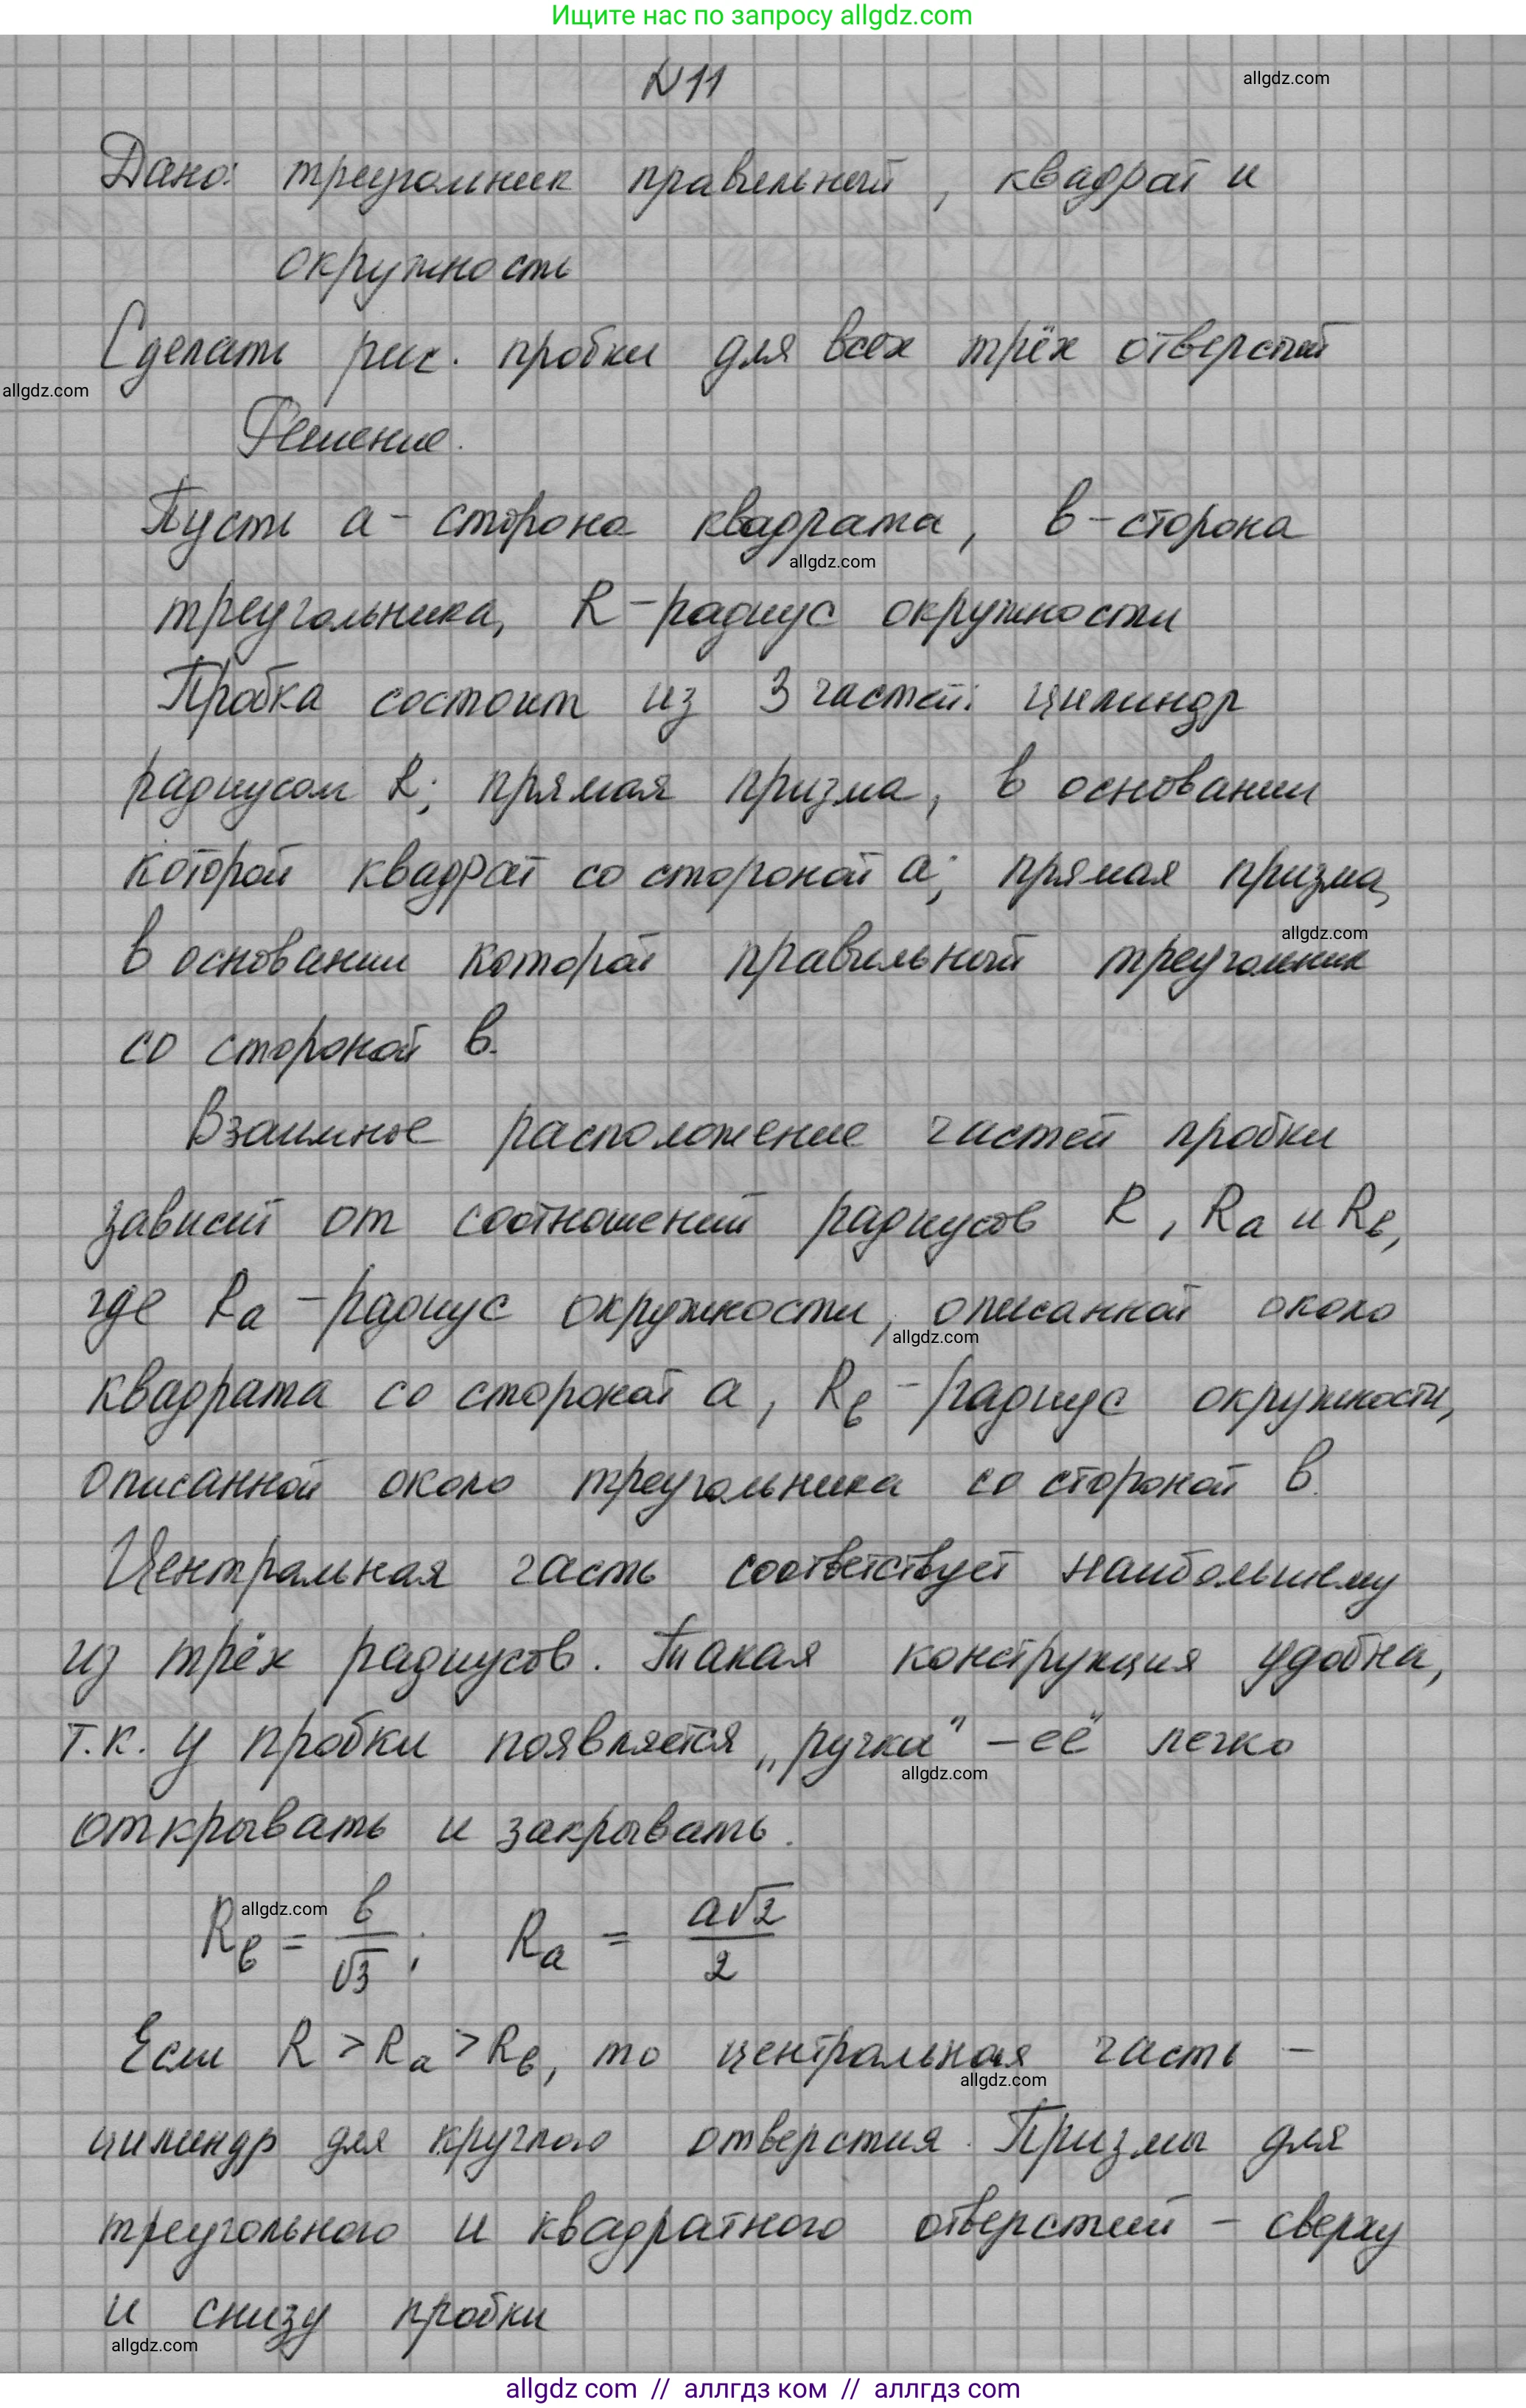 Ищите нас по запросу allgdz.com
N11
allgdz.com
Дано: треугольник правильный, квадрат и
окружность
Сделать рис. пробки для всех трёх отверстий
allgdz.com
Решение.
Пусть a - сторона квадрата, b - сторона
allgdz.com
треугольника, R - радиус окружности
Пробка состоит из 3 частей: цилиндр
радиусом R; прямая призма, в основании
которой квадрат со стороной a; прямая призма,
allgdz.com
в основании которой правильный треугольник
со стороной b.
Взаимное расположение частей пробки
зависит от соотношений радиусов R, Ra и Rb,
где Ra - радиус окружности, описанной около
allgdz.com
квадрата со стороной a, Rb - радиус окружности,
описанной около треугольника со стороной b.
Центральная часть соответствует наибольшему
из трёх радиусов. Такая конструкция удобна,
т.к. у пробки появляется „ручка" - её легко
allgdz.com
открывать и закрывать.
allgdz.com
Rb = b/√3; Ra = a√2/2
Если R > Ra > Rb, то центральная часть -
allgdz.com
цилиндр для круглого отверстия. Призмы для
треугольного и квадратного отверстий - сверху
и снизу пробки
allgdz.com
allgdz.com // аллгдз ком // аллгдз com